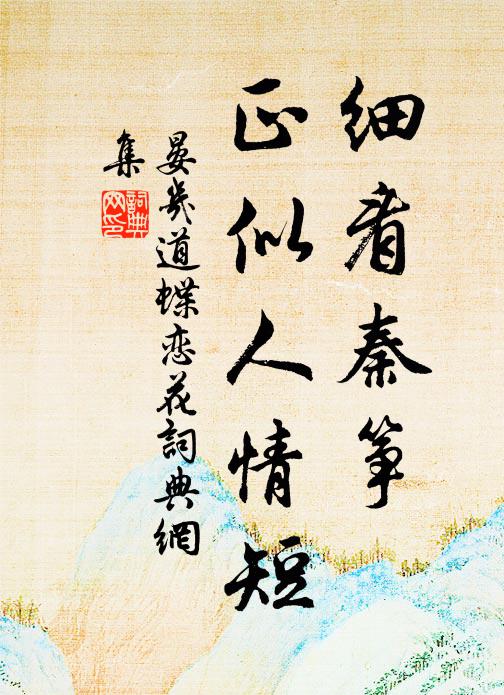 细看秦筝
正似人情短
晏幾道蝶恋花詞典網
集
詞典
网印